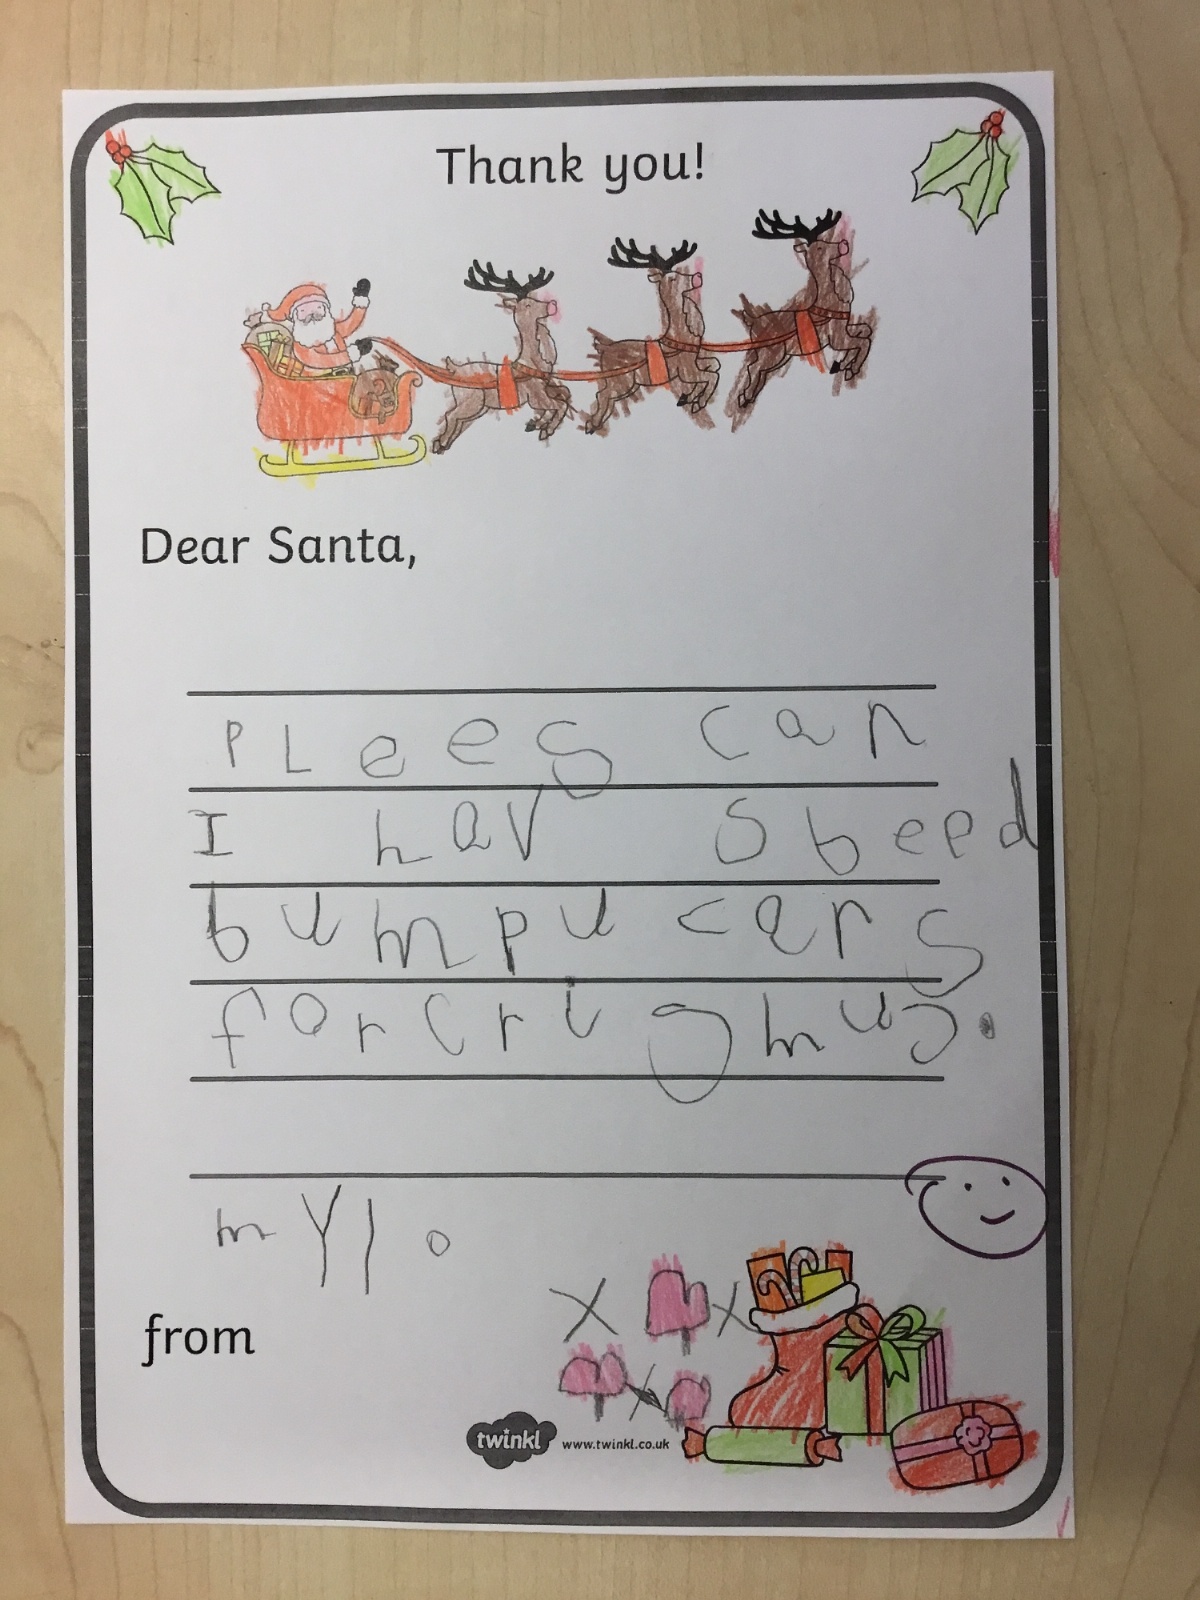 Thank you!
Dear Santa,
PLees can
I hav sbeed
bumpu cars
forcrismus.
mYlo
from
twinkl www.twinkl.co.uk